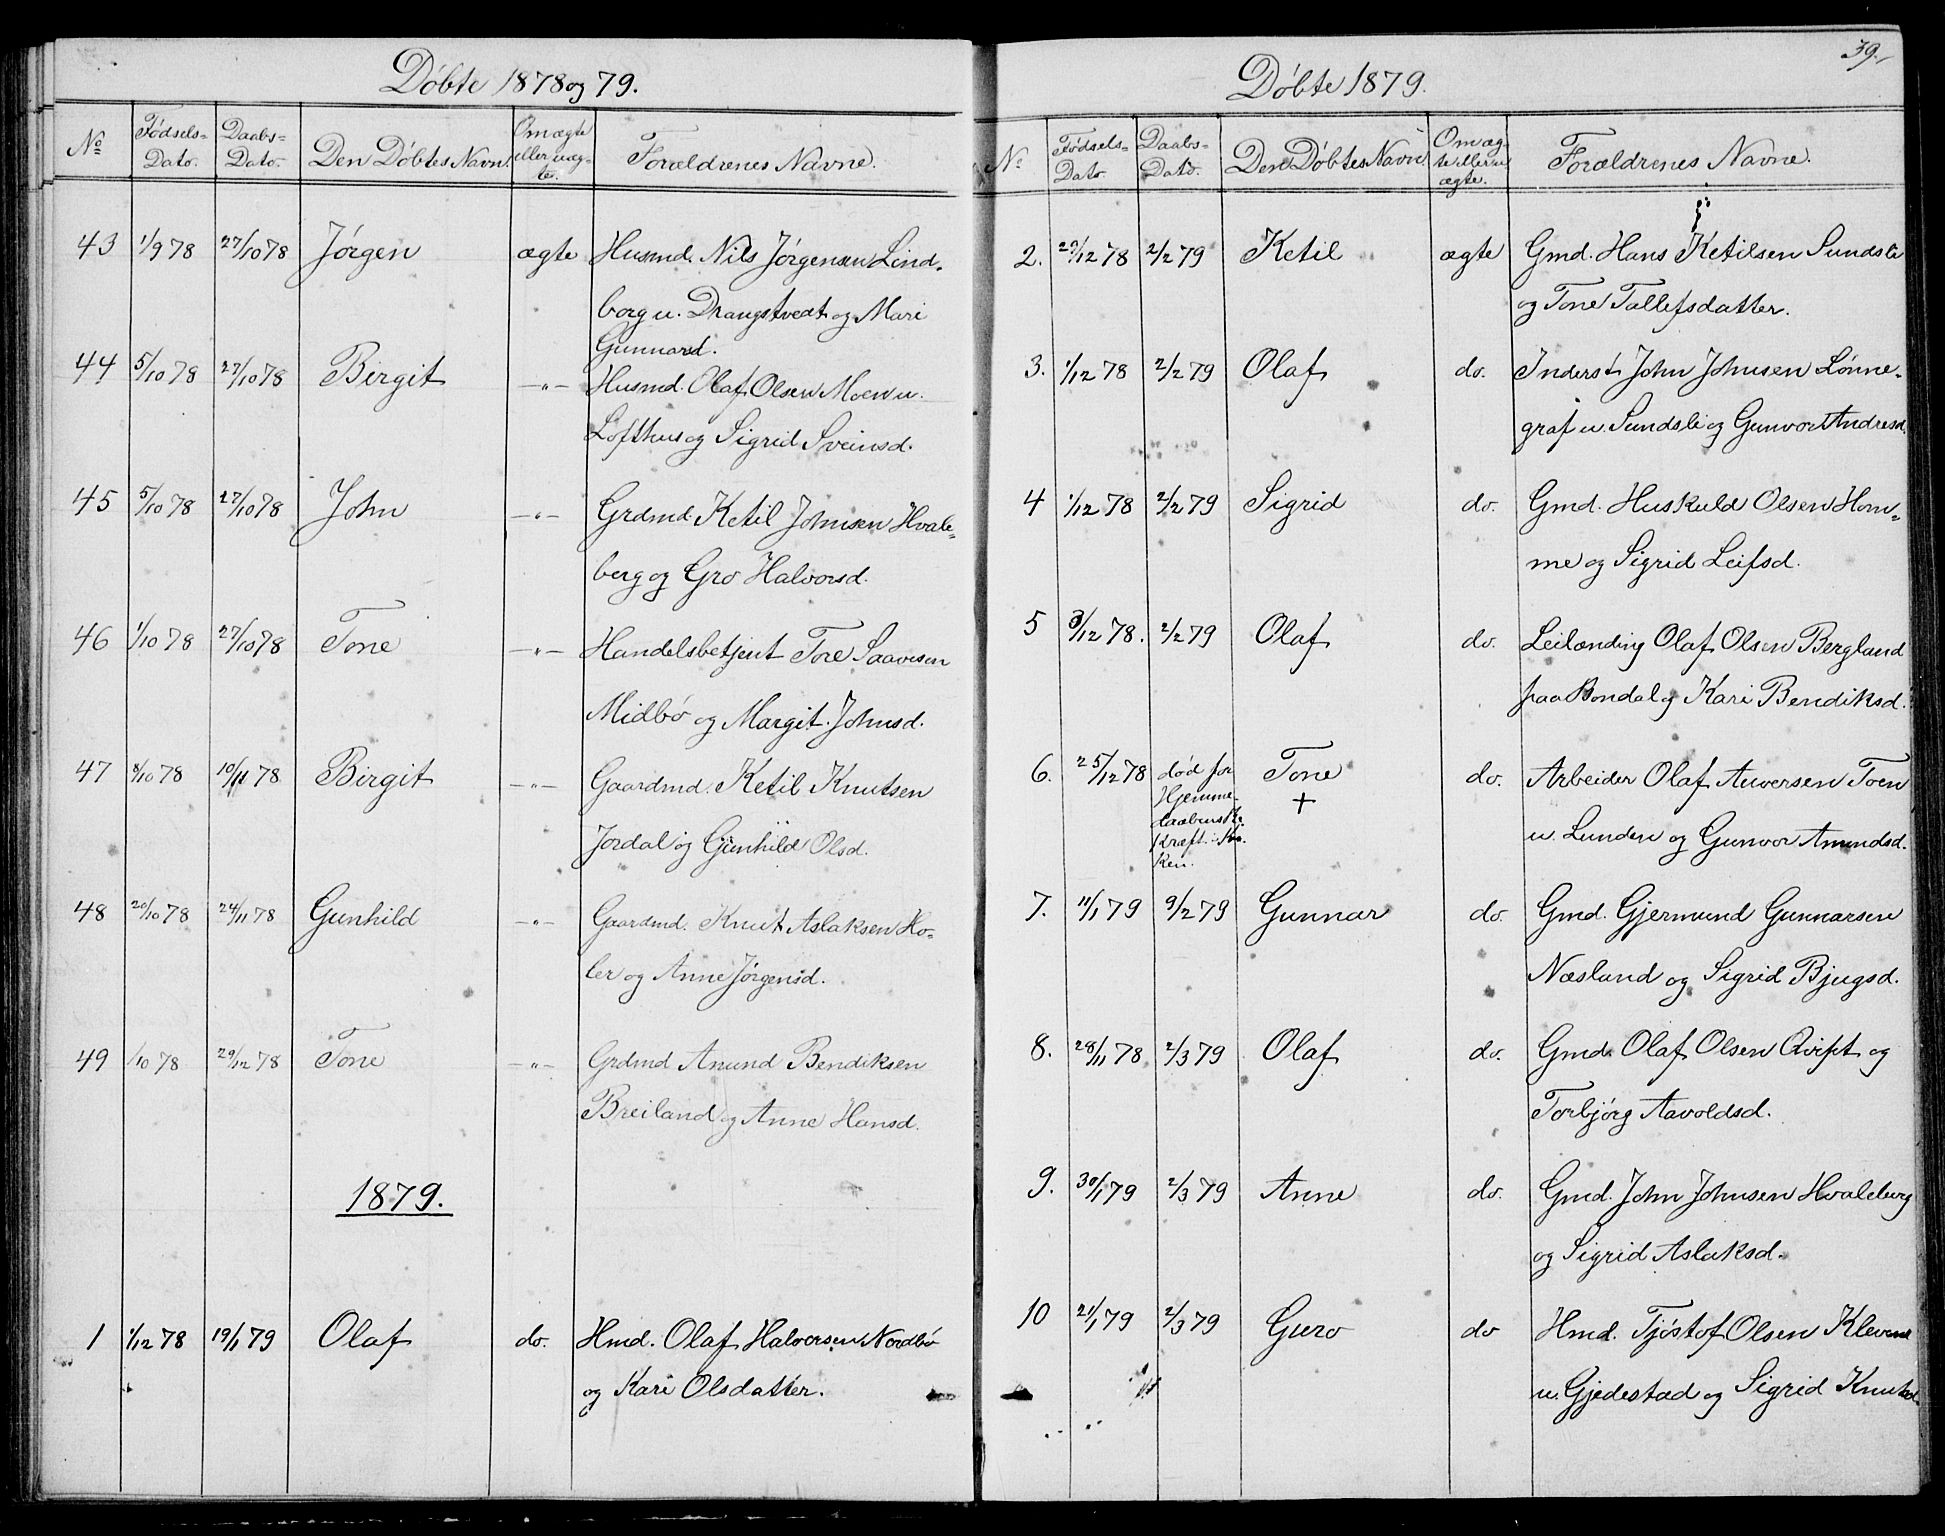 Döbte 1878 og 79.
No Fødsels=Dato. Daabs=Dato. Den Döbtes Navn Om ægte eller uæg=te. Forældrenes Navne.
43 1/9 78 27/10 78 Jørgen ægte Husmd. Nils Jørgensen Lind=
borg u. Drangstvedt og Mari
Gunnarsd.
44 5/10 78 27/10 78 Birgit —"— Husmd. Olaf Olsen Moen u.
Lofthus og Sigrid Sveinsd.
45 5/10 78 27/10 78 John —"— Grdmd. Ketil Johnsen Hvale=
berg og Gro Halvorsd.
46 1/10 78 27/10 78 Tone —"— Handelsbetjent Tore Saavesen
Midbö og Margit Johnsd.
47 8/10 78 10/11 78 Birgit —"— Gaardmd. Ketil Knutsen
Jordal og Gunhild Olsd.
48 20/10 78 24/11 78 Gunhild —"— Gaardmd. Knut Aslaksen Ho=
ler og Anne Jørgensd.
49 /10 78 29/12 78 Tone —"— Grdmd Anund Bendiksen
Breiland og Anne Hansd.
1879.
1 1/12 78 19/1 79 Olaf do. Hmd. Olaf Halvorsen Nordbö
og Kari Olsdatter.
39.
Döbte 1879.
No. Fødsels=Dato Daabs=Dato. Den Döbtes Navn Om æg=te eller uægte. Forældrenes Navne.
2. 29/12 78 2/2 79 Ketil ægte Gmd. Hans Ketilsen Sundsli
og Tone Tallefsdatter.
3. 1/12 78 2/2 79 Olaf do. Inderst John Johnsen Lønne=
graf u. Sundsli og Gunvor Andresd.
4 1/12 78 2/2 79 Sigrid do. Gmd. Huskuld Olsen Hom=
me og Sigrid Leifsd.
5 3/12 78. 2/2 79 Olaf do. Leilænding Olaf Olsen Bergland
paa Bondal og Kari Bendiksd.
6. 25/12 78 død før Tone do. Arbeider Olaf Auversen Toen
Hjemme= +
daabens
Kræft. i
ken.
u. Lunden og Gunvor Amundsd.
7. 11/1 79 9/2 79 Gunnar do. Gmd. Gjermund Gunnarsen
Næsland og Sigrid Bjugsd.
8. 28/11 78 2/3 79 Olaf do. Gmd. Olaf Olsen Qvipt og
Torbjörg Aavoldsd.
9. 30/1 79 2/3 79 Anne do. Gmd. John Johnsen Hvaleberg
og Sigrid Aslaksd.
10 21/1 79 2/3 79 Guro do Hmd. Tjöstof Olsen Klevene
u. Gjedestad og Sigrid Knutsd.